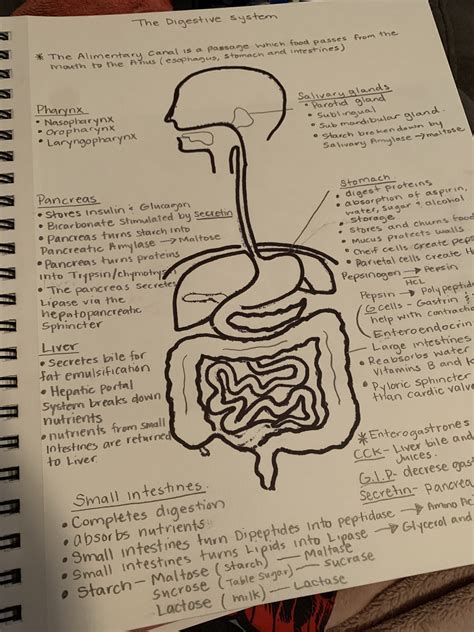 The Digestive System
* The Alimentary Canal is a passage which food passes from the
mouth to the Anus (esophagus, stomach and intestines)
Pharynx
• Nasopharynx
• Oropharynx
• Laryngopharynx
Salivary glands
• Parotid gland
• Sublingual
• Sub mandibular gland.
• Starch broken down by
Salivary Amylase → maltose
Pancreas
• Stores Insulin + Glucagon
• Bicarbonate Stimulated by Secretin
• Pancreas turns starch into
Pancreatic Amylase → Maltose
• Pancreas turns proteins
into Trypsin/chymotryp
• The pancreas secretes
Lipase via the
hepatopancreatic
Sphincter
Stomach
• digest Proteins
• absorption of aspirin,
water, sugar + alcohol
• Storage
• Stores and churns food
• Mucus protects walls
• Cheif cells create pep
• Parietal cells create H
Pepsinogen → Pepsin
HCL
Pepsin → Polypeptid
• G cells - Gastrin
help with contracti
Enteroendocrin
Large intestines
• Reabsorbs water
Vitamins B and
• Pyloric sphincter
than cardiac valve
Liver
• Secretes bile for
fat emulsification
• Hepatic portal
System breaks down
nutrients
• nutrients from small
intestines are returned
to Liver.
* Enterogastrones
CCK - Liver bile and
Juices.
G.I.P - decrese gast
Secretin - Pancrea
Small intestines.
• Completes digestion
• absorbs nutrients
• Small intestines turn Dipeptides into peptidase → Amino Aci
• Small intestines turns Lipids into Lipase → Glycerol and
• Starch - Maltose (starch) - Maltase
Sucrose (Table Sugar) - Sucrase
Lactose (milk) - Lactase